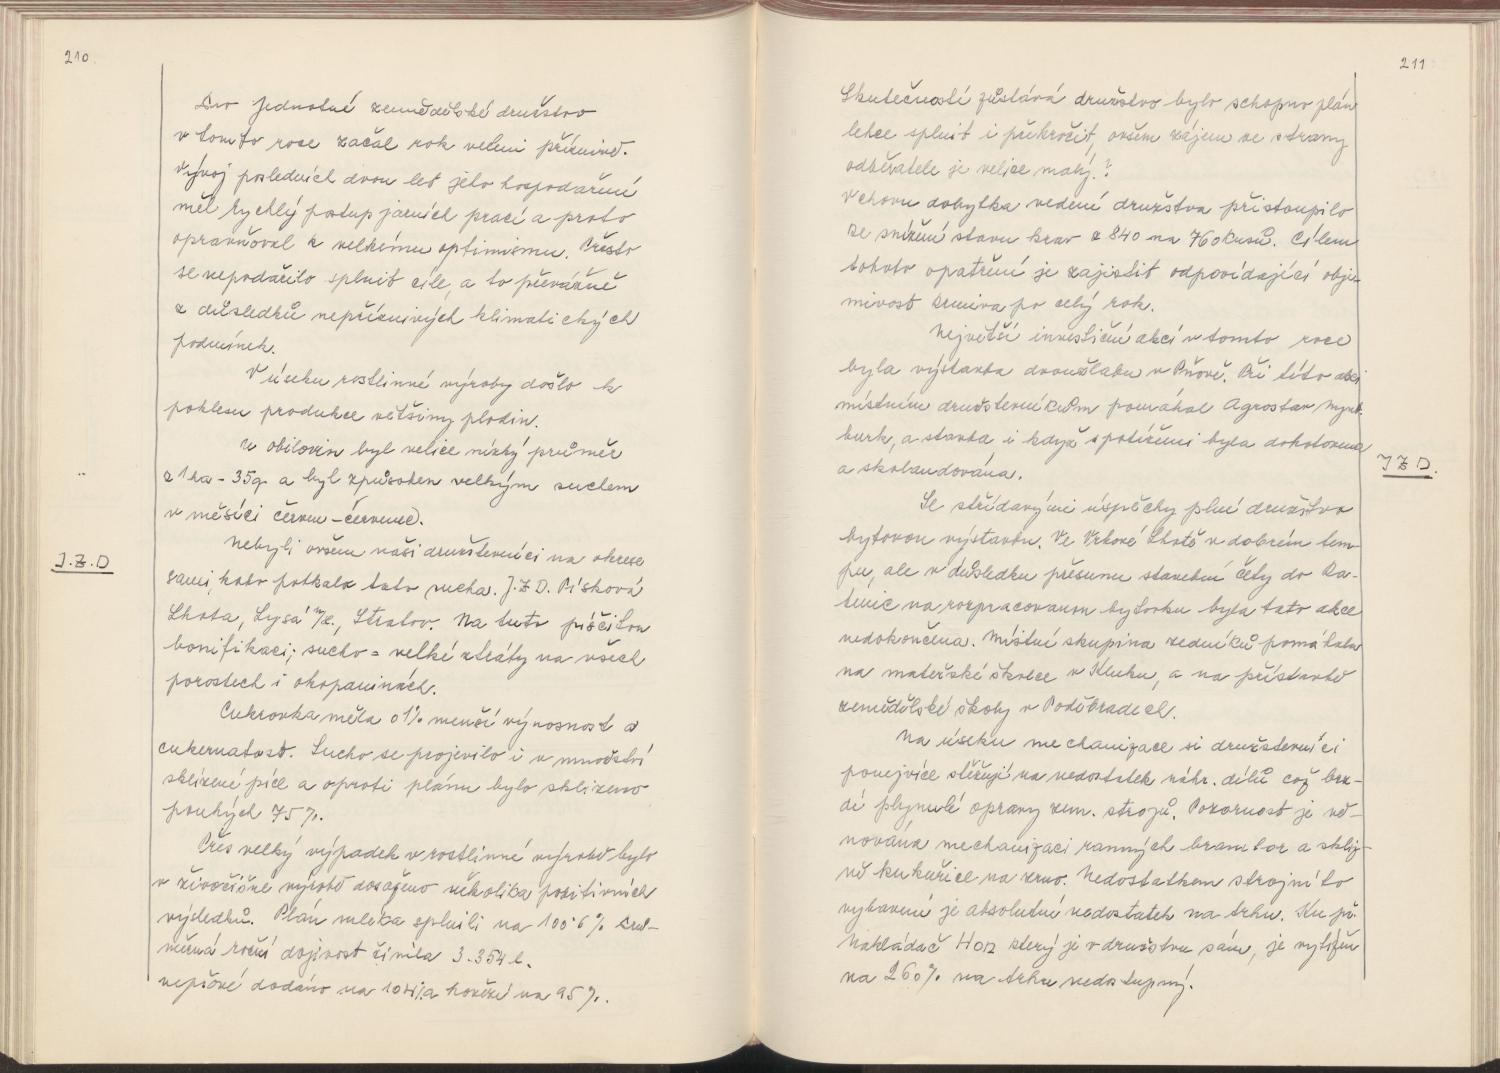 210
Pro Jednotné zemědělské družstvo
v tomto roce začal rok velmi příznivě.
Vývoj posledních dvou let jeho hospodaření
měl rychlý postup jarních prací a proto
opravňoval k velkému optimismu. Přesto
se nepodařilo splnit cíle, a to převážně
z důsledků nepříznivých klimatických
podmínek.
V úseku rostlinné výroby došlo k
poklesu produkce většiny plodin.
U obilovin byl velice nízký průměr
z 1 ha - 35q. a byl způsoben velkým suchem
v měsíci červnu - červenec.
J.Z.D
Nebyli ovšem naši družstevníci na okrese
sami, koho potkalo tato sucha. J.Z.D. Písková
Lhota, Lysá n/L., Stratov. Na tuto písčitou
bonifikaci; sucho = velké ztráty na všech
porostech i okopaninách.
Cukrovka měla o 1% menší výnosnost a
cukernatost. Sucho se projevilo i v množství
sklizené píce a oproti plánu bylo sklizeno
pouhých 75%.
Přes velký výpadek v rostlinné výrobě bylo
v živočišné výrobě dosaženo několika pozitivních
výsledků. Plán mléka splnili na 100·6%
měrná roční dojivost činila 3.354 l.
vepřové dodáno na 104% a hovězí na 95%.
211
Skutečností zůstává družstvo bylo schopno plán
lehce splnit i překročit, ovšem zájem ze strany
odběratele je velice malý.?
V chovu dobytka vedení družstva přistoupilo
ke snížení stavu krav z 840 na 760 kusů. Cílem
tohoto opatření je zajistit odpovídající obje-
mivost krmiva po celý rok.
Největší investiční akcí v tomto roce
byla výstavba dvoužlabu v Pňově. Při této akci
místním družstevníkům pomáhal Agrostav Nym-
burk, a stavba i když s potížemi byla dohotovena
a zkolaudována.
J Z D.
Se střídavými úspěchy plní družstvo
bytovou výstavbu. Ve Vrbové Lhotě v dobrém tem-
pu, ale v důsledku přesunu stavební čety do Ra-
tenic na rozpracovanou bytovku byla tato akce
nedokončena. Místní skupina zedníků pomáhala
na mateřské školce v Kluku, a na přístavbě
zemědělské školy v Poděbradech.
Na úseku mechanizace si družstevníci
ponejvíce stěžují na nedostatek náhr. dílů což brz-
dí plynulé opravy zem. strojů. Pozornost je vě-
nována mechanizaci ranných brambor a skliz-
ně kukuřice na zrno. Nedostatkem strojního
vybavení je absolutní nedostatek na trhu. Ku př.
Nakládač Hon který je v družstvu sám, je vytížen
na 260% na trhu nedostupný.